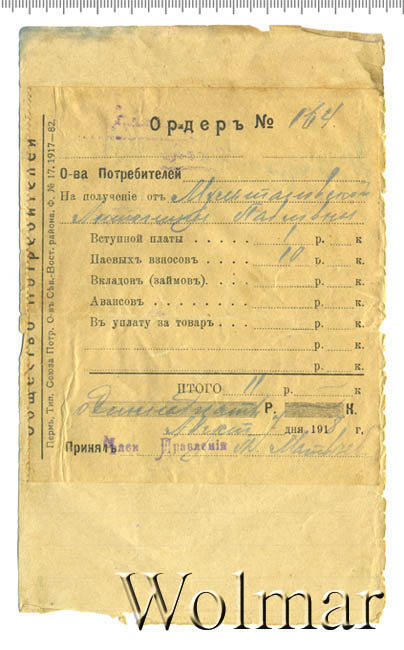 Общество потребителей
Пермь, Тип. Союза Потр. О-въ Сѣв.-Вост. района. Ф. № 17. 1917—82.
Ордеръ № 164
О-ва Потребителей
На получение отъ
Павловны
Вступной платы 1 р. к
Паевыхъ взносовъ 10 р. к
Вкладовъ (займовъ) р. к
Авансовъ р. к
Въ уплату за товаръ р. к
р. к
р. к
ИТОГО 11 р. к
Одиннадцать Р. К.
7 дня 1918 г,
Принялъ Член Правленія М.
Wolmar